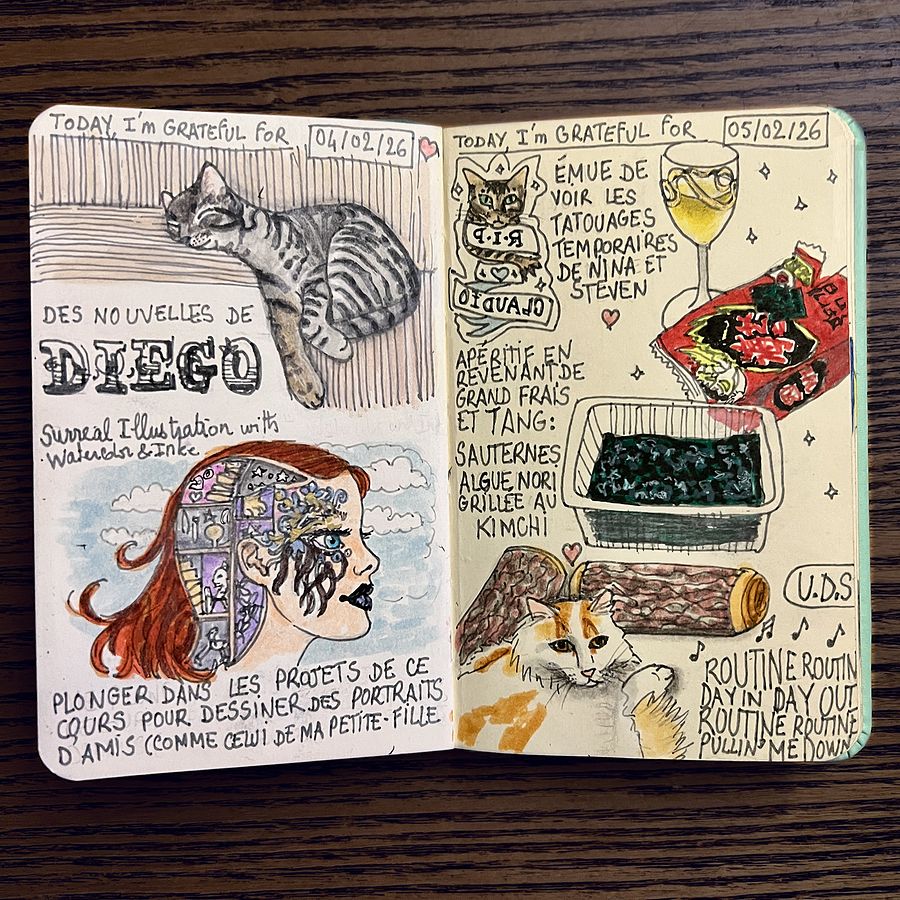 TODAY, I'm GRATEFUL FOR
04/02/26
DES NOUVELLES DE
DIEGO
Surreal Illustration with
Watercolor & Inke
PLONGER DANS LES PROJETS DE CE
COURS POUR DESSINER DES PORTRAITS
D'AMIS (COMME CELUI DE MA PETITE-FILLE
TODAY, I'm GRATEFUL FOR
05/02/26
R.I.P
CLAUDIO
ÉMUE DE
VOIR LES
TATOUAGES
TEMPORAIRES
DE NINA ET
STEVEN
APÉRITIF EN
REVENANT DE
GRAND FRAIS
ET TANG:
SAUTERNES
ALGUE NORI
GRILLÉE AU
KIMCHI
U.D.S
ROUTINE ROUTIN
DAY IN DAY OUT
ROUTINE ROUTINE
PULLIN' ME DOWN